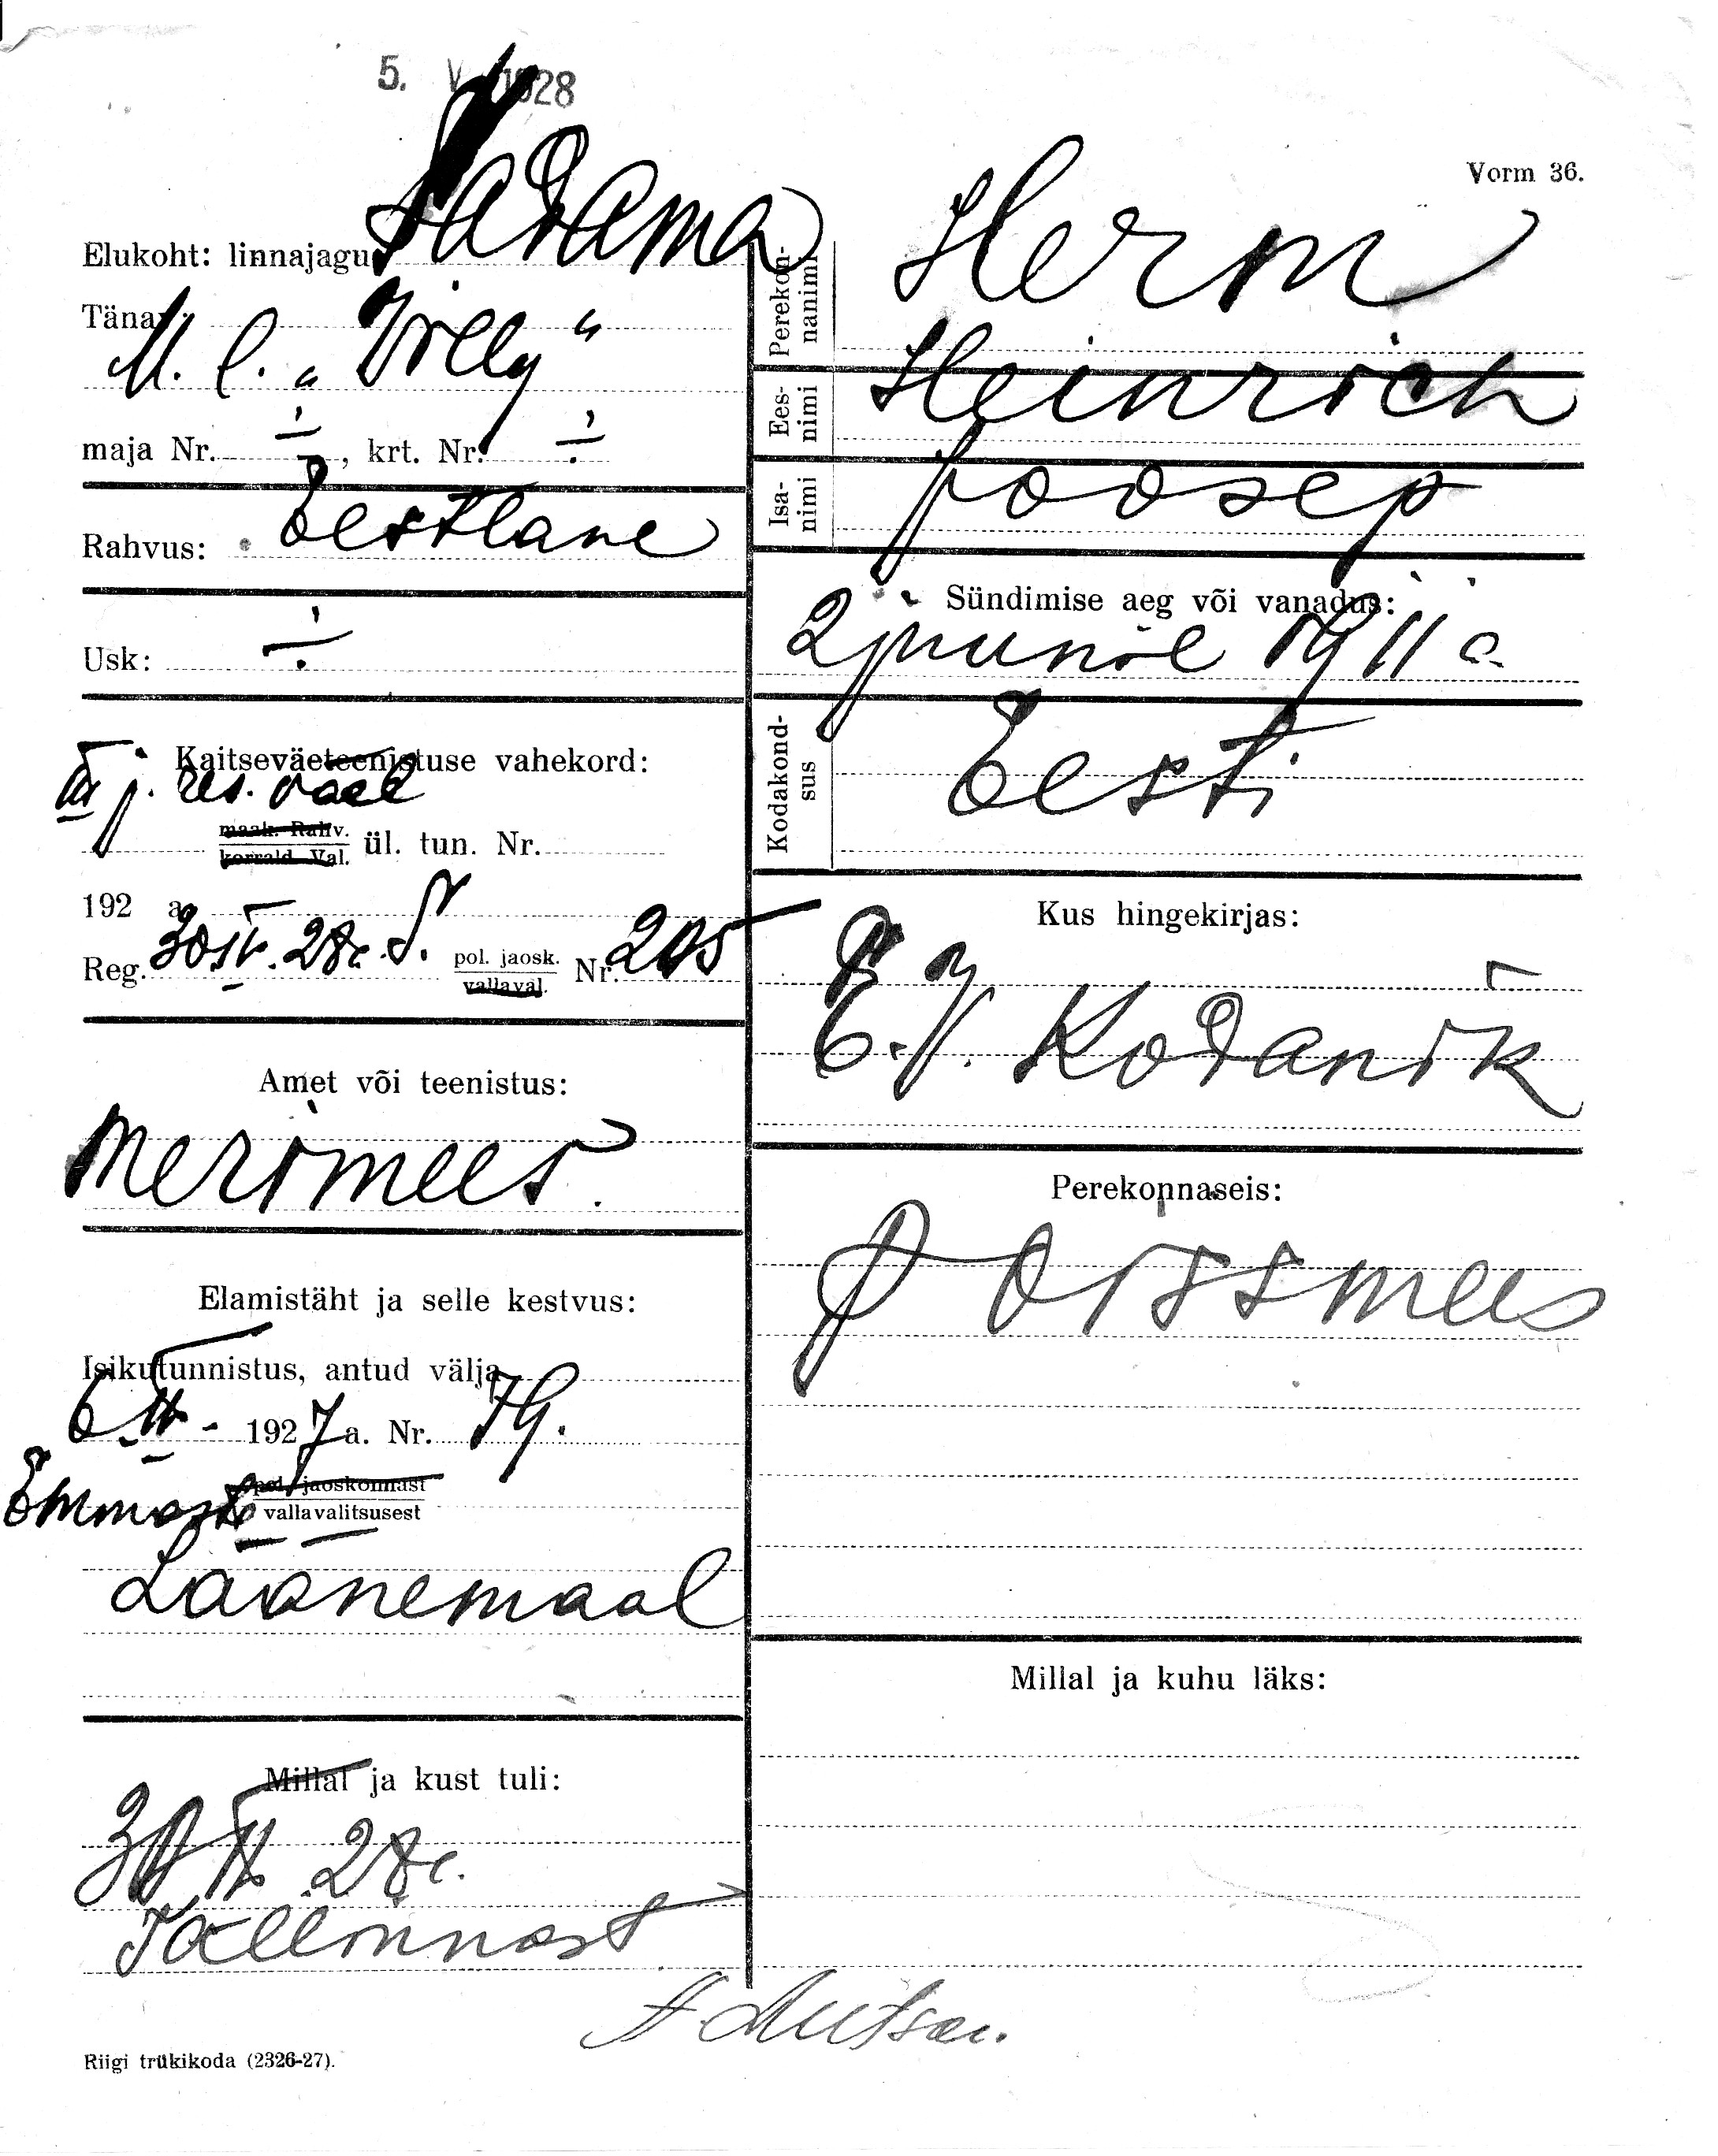 5. V 1928
Vorm 36.
Elukoht: linnajagu Sadama
Tänav:
M. l. „Villy“
maja Nr. ÷, krt. Nr. ÷
Rahvus: Eestlane
Usk: ÷
Kaitseväeteenistuse vahekord:
III j. res. väel
maak. Rahv.
korrald. Val. ül. tun. Nr.
192 a.
Reg. 30 IV. 28 a. S. pol. jaosk. Nr. 205
vallaval.
Amet või teenistus:
Merimees.
Elamistäht ja selle kestvus:
Isikutunnistus, antud välja
6 II - 1927 a. Nr. 79.
Emmaste pol. jaoskonnast
vallavalitsusest
Läänemaal
Millal ja kust tuli:
30 IV 28 a.
Tallinnast
Perekonnanimi Herm
Eesnimi Heinrich
Isanimi Joosep
Sündimise aeg või vanadus:
2 juunil 1911 a.
Kodakondsus Eesti
Kus hingekirjas:
E.V. Kodanik
Perekonnaseis:
Poissmees
Millal ja kuhu läks:
Riigi trükikoda (2326-27).